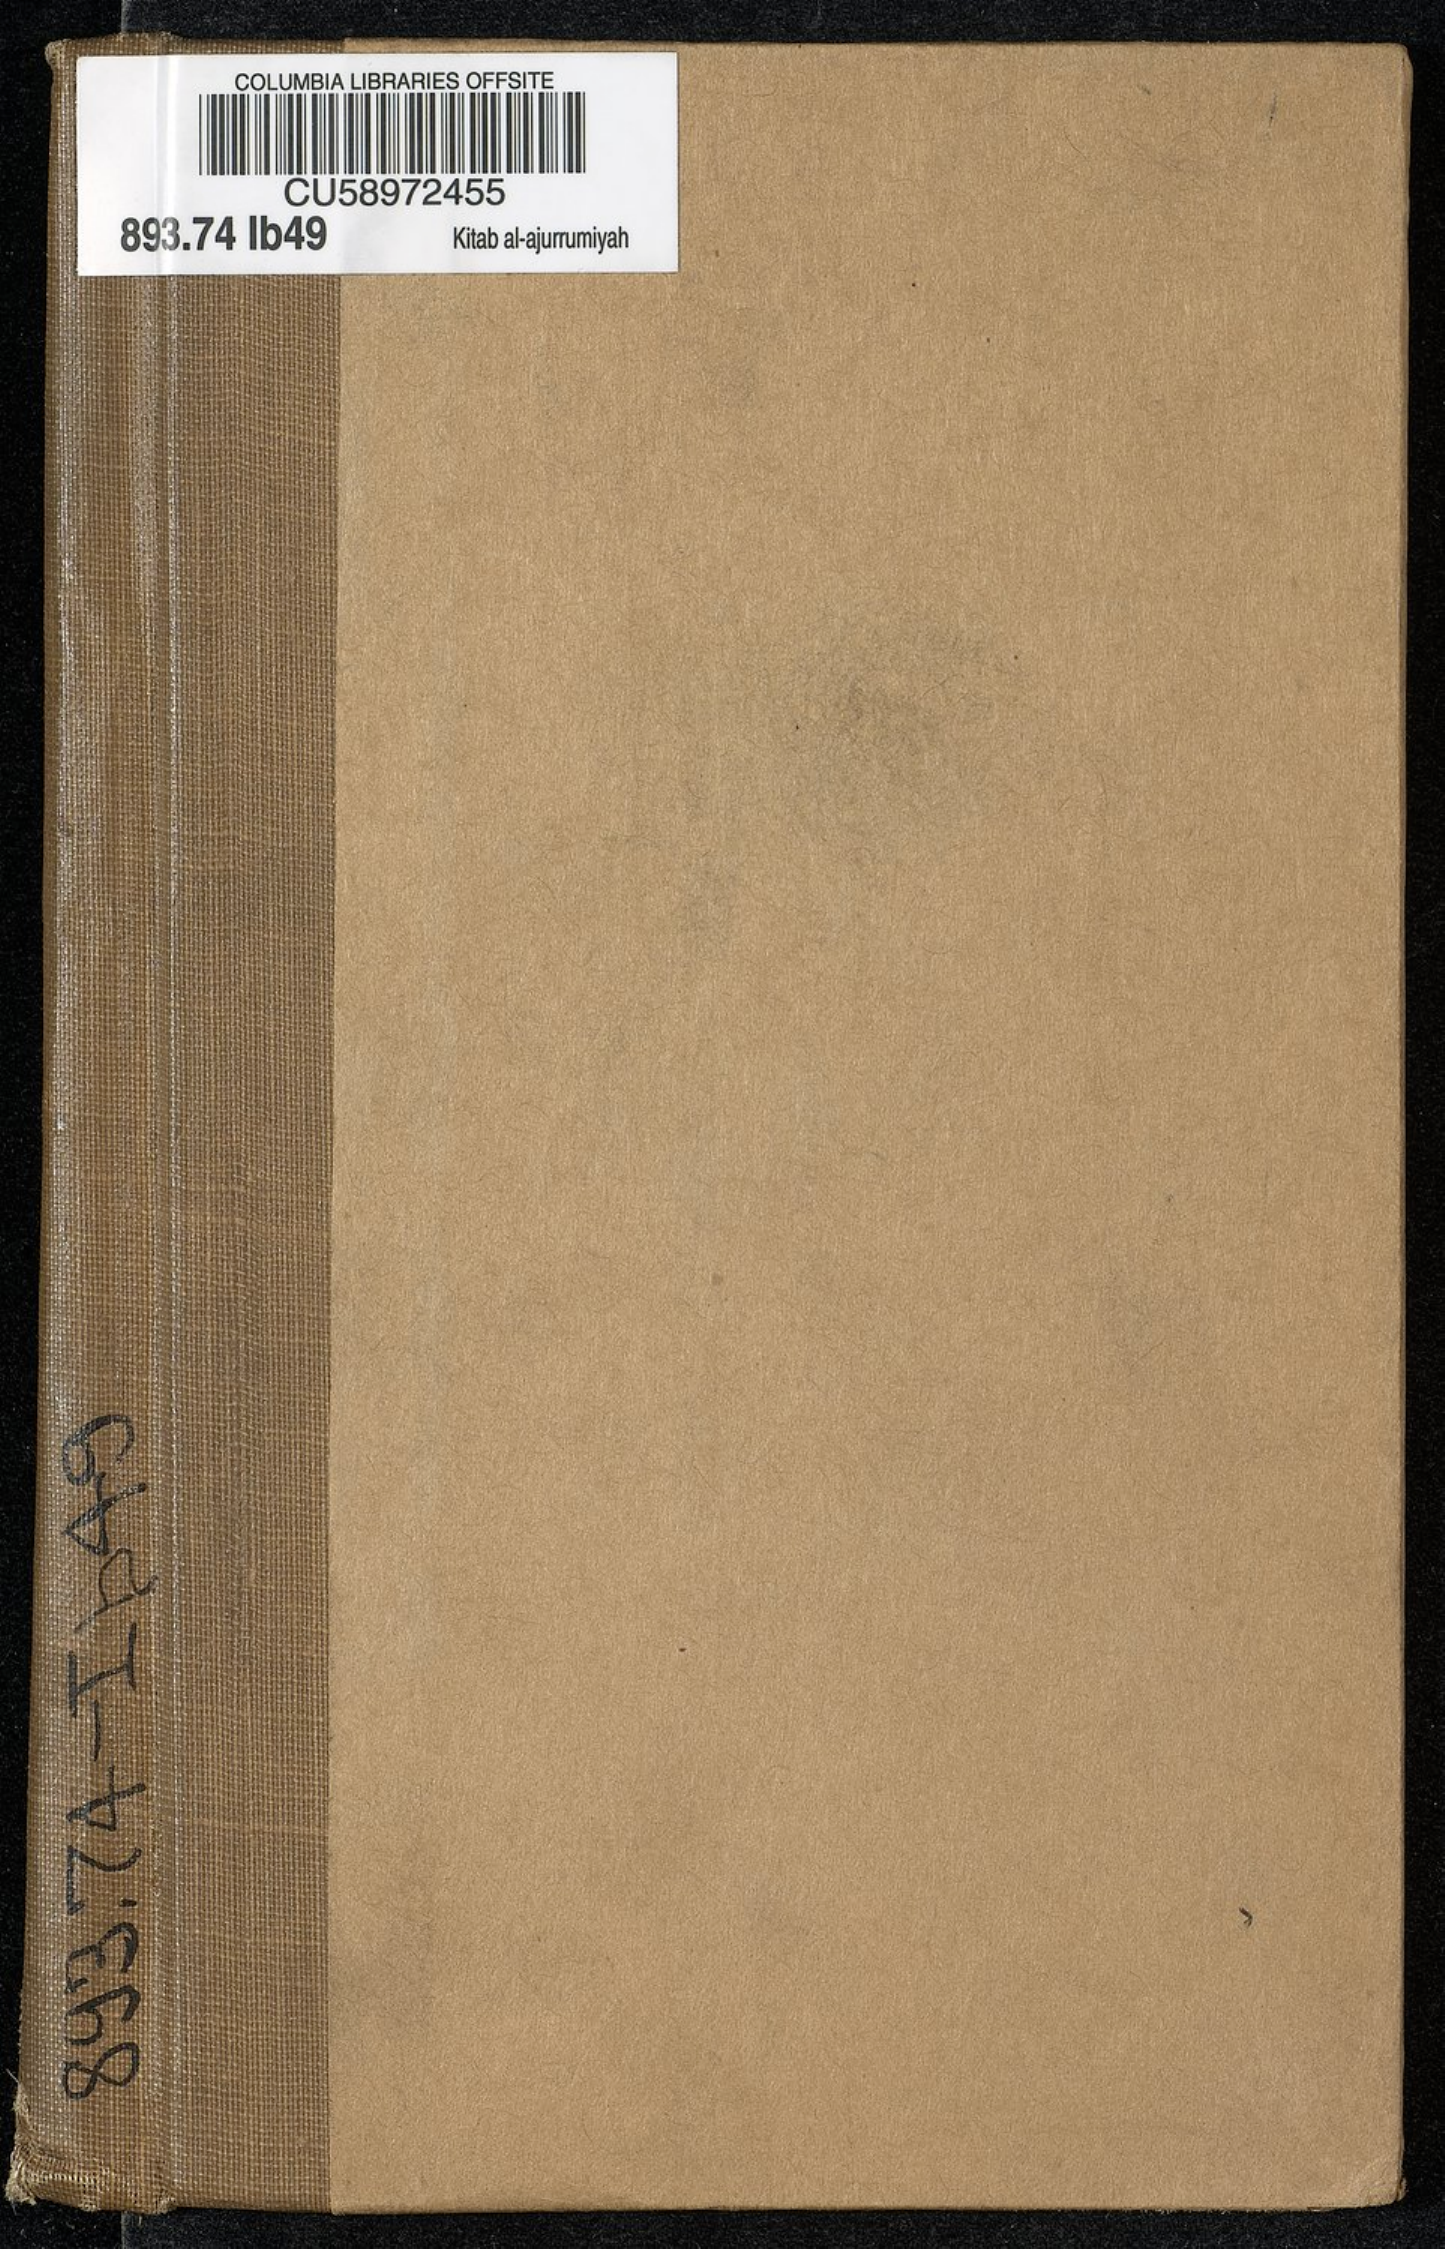 COLUMBIA LIBRARIES OFFSITE
CU58972455
893.74 Ib49 Kitab al-ajurrumiyah
893.74-Ib49